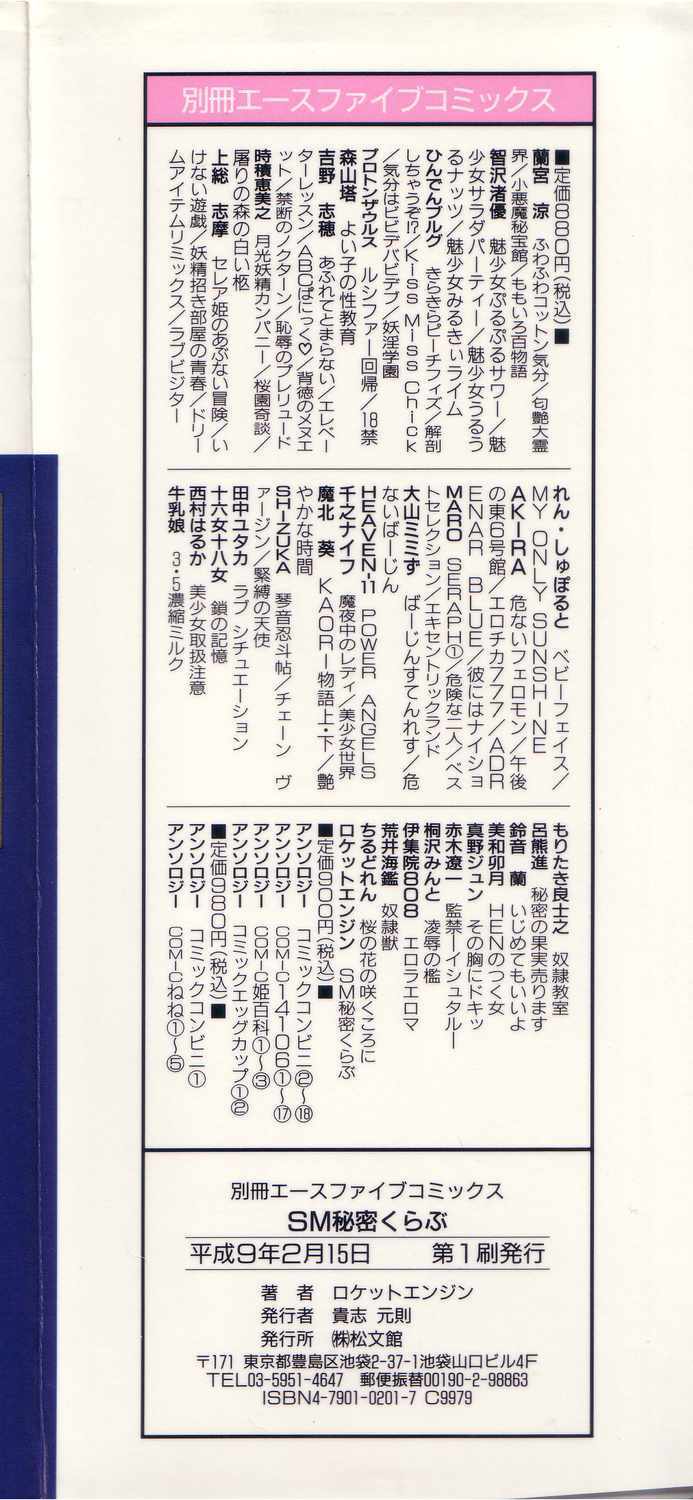 別冊エースファイブコミックス
■定価880円(税込)■
蘭宮 涼 ふわふわコットン気分/匂艶大霊
界/小悪魔秘宝館/ももいろ百物語
智沢渚優 魅少女ぷるぷるサワー/魅
少女サラダパーティー/魅少女うるう
るナッツ/魅少女みるきぃライム
ひんでんブルグ きらきらピーチフィズ/解剖
しちゃうぞ!?/Kiss Miss Chick
/気分はビビデバビデブ/妖淫学園
プロトンザウルス ルシファー回帰/18禁
森山塔 よい子の性教育
吉野 志穂 あふれてとまらない/エレベー
ターレッスン/ABCぱにっく♡/背徳のメヌエ
ット/禁断のノクターン/恥辱のプレリュード
時積恵美之 月光妖精カンパニー/桜園奇談/
屠りの森の白い柩
上総 志摩 セレア姫のあぶない冒険/い
けない遊戯/妖精招き部屋の青春/ドリー
ムアイテムリミックス/ラブビジター
れん・しゅぽると ベビーフェイス/
MY ONLY SUNSHINE
AKIRA 危ないフェロモン/午後
の東6号館/エロチカ777/ADR
ENAR BLUE/彼にはナイショ
MARO SERAPH①/危険な二人/ベス
トセレクション/エキセントリックランド
大山ミミず ばーじんすてんれす/危
ないばーじん
HEAVEN-11 POWER ANGELS
千之ナイフ 魔夜中のレディ/美少女世界
魔北 葵 KAORI物語上・下/艶
やかな時間
SHIZUKA 琴音忍斗帖/チェーン ヴ
ァージン/緊縛の天使
田中ユタカ ラブ シチュエーション
十六女十八女 鎖の記憶
西村はるか 美少女取扱注意
牛乳娘 3・5濃縮ミルク
もりたき良士之 奴隷教室
呂熊進 秘密の果実売ります
鈴音 蘭 いじめてもいいよ
美和卯月 HENのつく女
真野ジュン その胸にドキッ
赤木遼一 監禁ーイシュタルー
桐沢みんと 凌辱の檻
伊集院808 エロラエロマ
荒井海鑑 奴隷獣
ちるどれん 桜の花の咲くころに
ロケットエンジン SM秘密くらぶ
■定価900円(税込)■
アンソロジー コミックコンビニ②〜⑱
アンソロジー COMIC14106①〜⑰
アンソロジー COMIC姫百科①〜③
アンソロジー コミックエッグカップ①②
■定価980円(税込)■
アンソロジー コミックコンビニ①
アンソロジー COMICねね①〜⑤
別冊エースファイブコミックス
SM秘密くらぶ
平成9年2月15日 第1刷発行
著 者 ロケットエンジン
発行者 貴志 元則
発行所 ㈱松文館
〒171 東京都豊島区池袋2-37-1池袋山口ビル4F
TEL03-5951-4647 郵便振替00190-2-98863
ISBN4-7901-0201-7 C9979